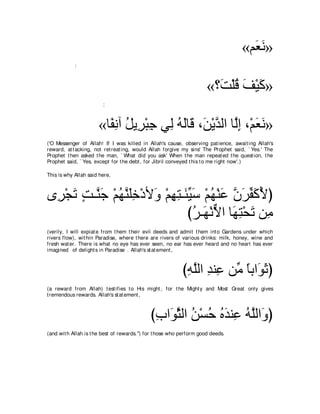 «نَعَمْ»
:
«كَيْفَ قُلْتَ؟»
:
«نَعَمْ، إِلَّا الدَّيْنَ، قَالَهُ لِي جِبْرِيلُ آنِفًا»
('O Messenger of Allah! If I was killed in Allah's cause, observing patience, awaiting Allah's
reward, attacking, not retreating, would Allah forgive my sins' The Prophet said, `Yes.' The
Prophet then asked the man, `What did you ask' When the man repeated the question, the
Prophet said, `Yes, except for the debt, for Jibril conveyed this to me right now'.)
This is why Allah said here,
(لأُكَفِّرَنَّ عَنْهُمْ سَيِّئَـتِهِمْ وَلأُدْخِلَنَّهُمْ جَنَّـتٍ تَجْرِى
مِن تَحْتِهَا الأَنْهَـرُ)
(verily, I will expiate from them their evil deeds and admit them into Gardens under which
rivers flow), within Paradise, where there are rivers of various drinks: milk, honey, wine and
fresh water. There is what no eye has ever seen, no ear has ever heard and no heart has ever
imagined of delights in Paradise . Allah's statement,
(ثَوَاباً مِّن عِندِ اللَّهِ)
(a reward from Allah) testifies to His might, for the Mighty and Most Great only gives
tremendous rewards. Allah's statement,
(وَاللَّهُ عِندَهُ حُسْنُ الثَّوَابِ)
(and with Allah is the best of rewards.") for those who perform good deeds.